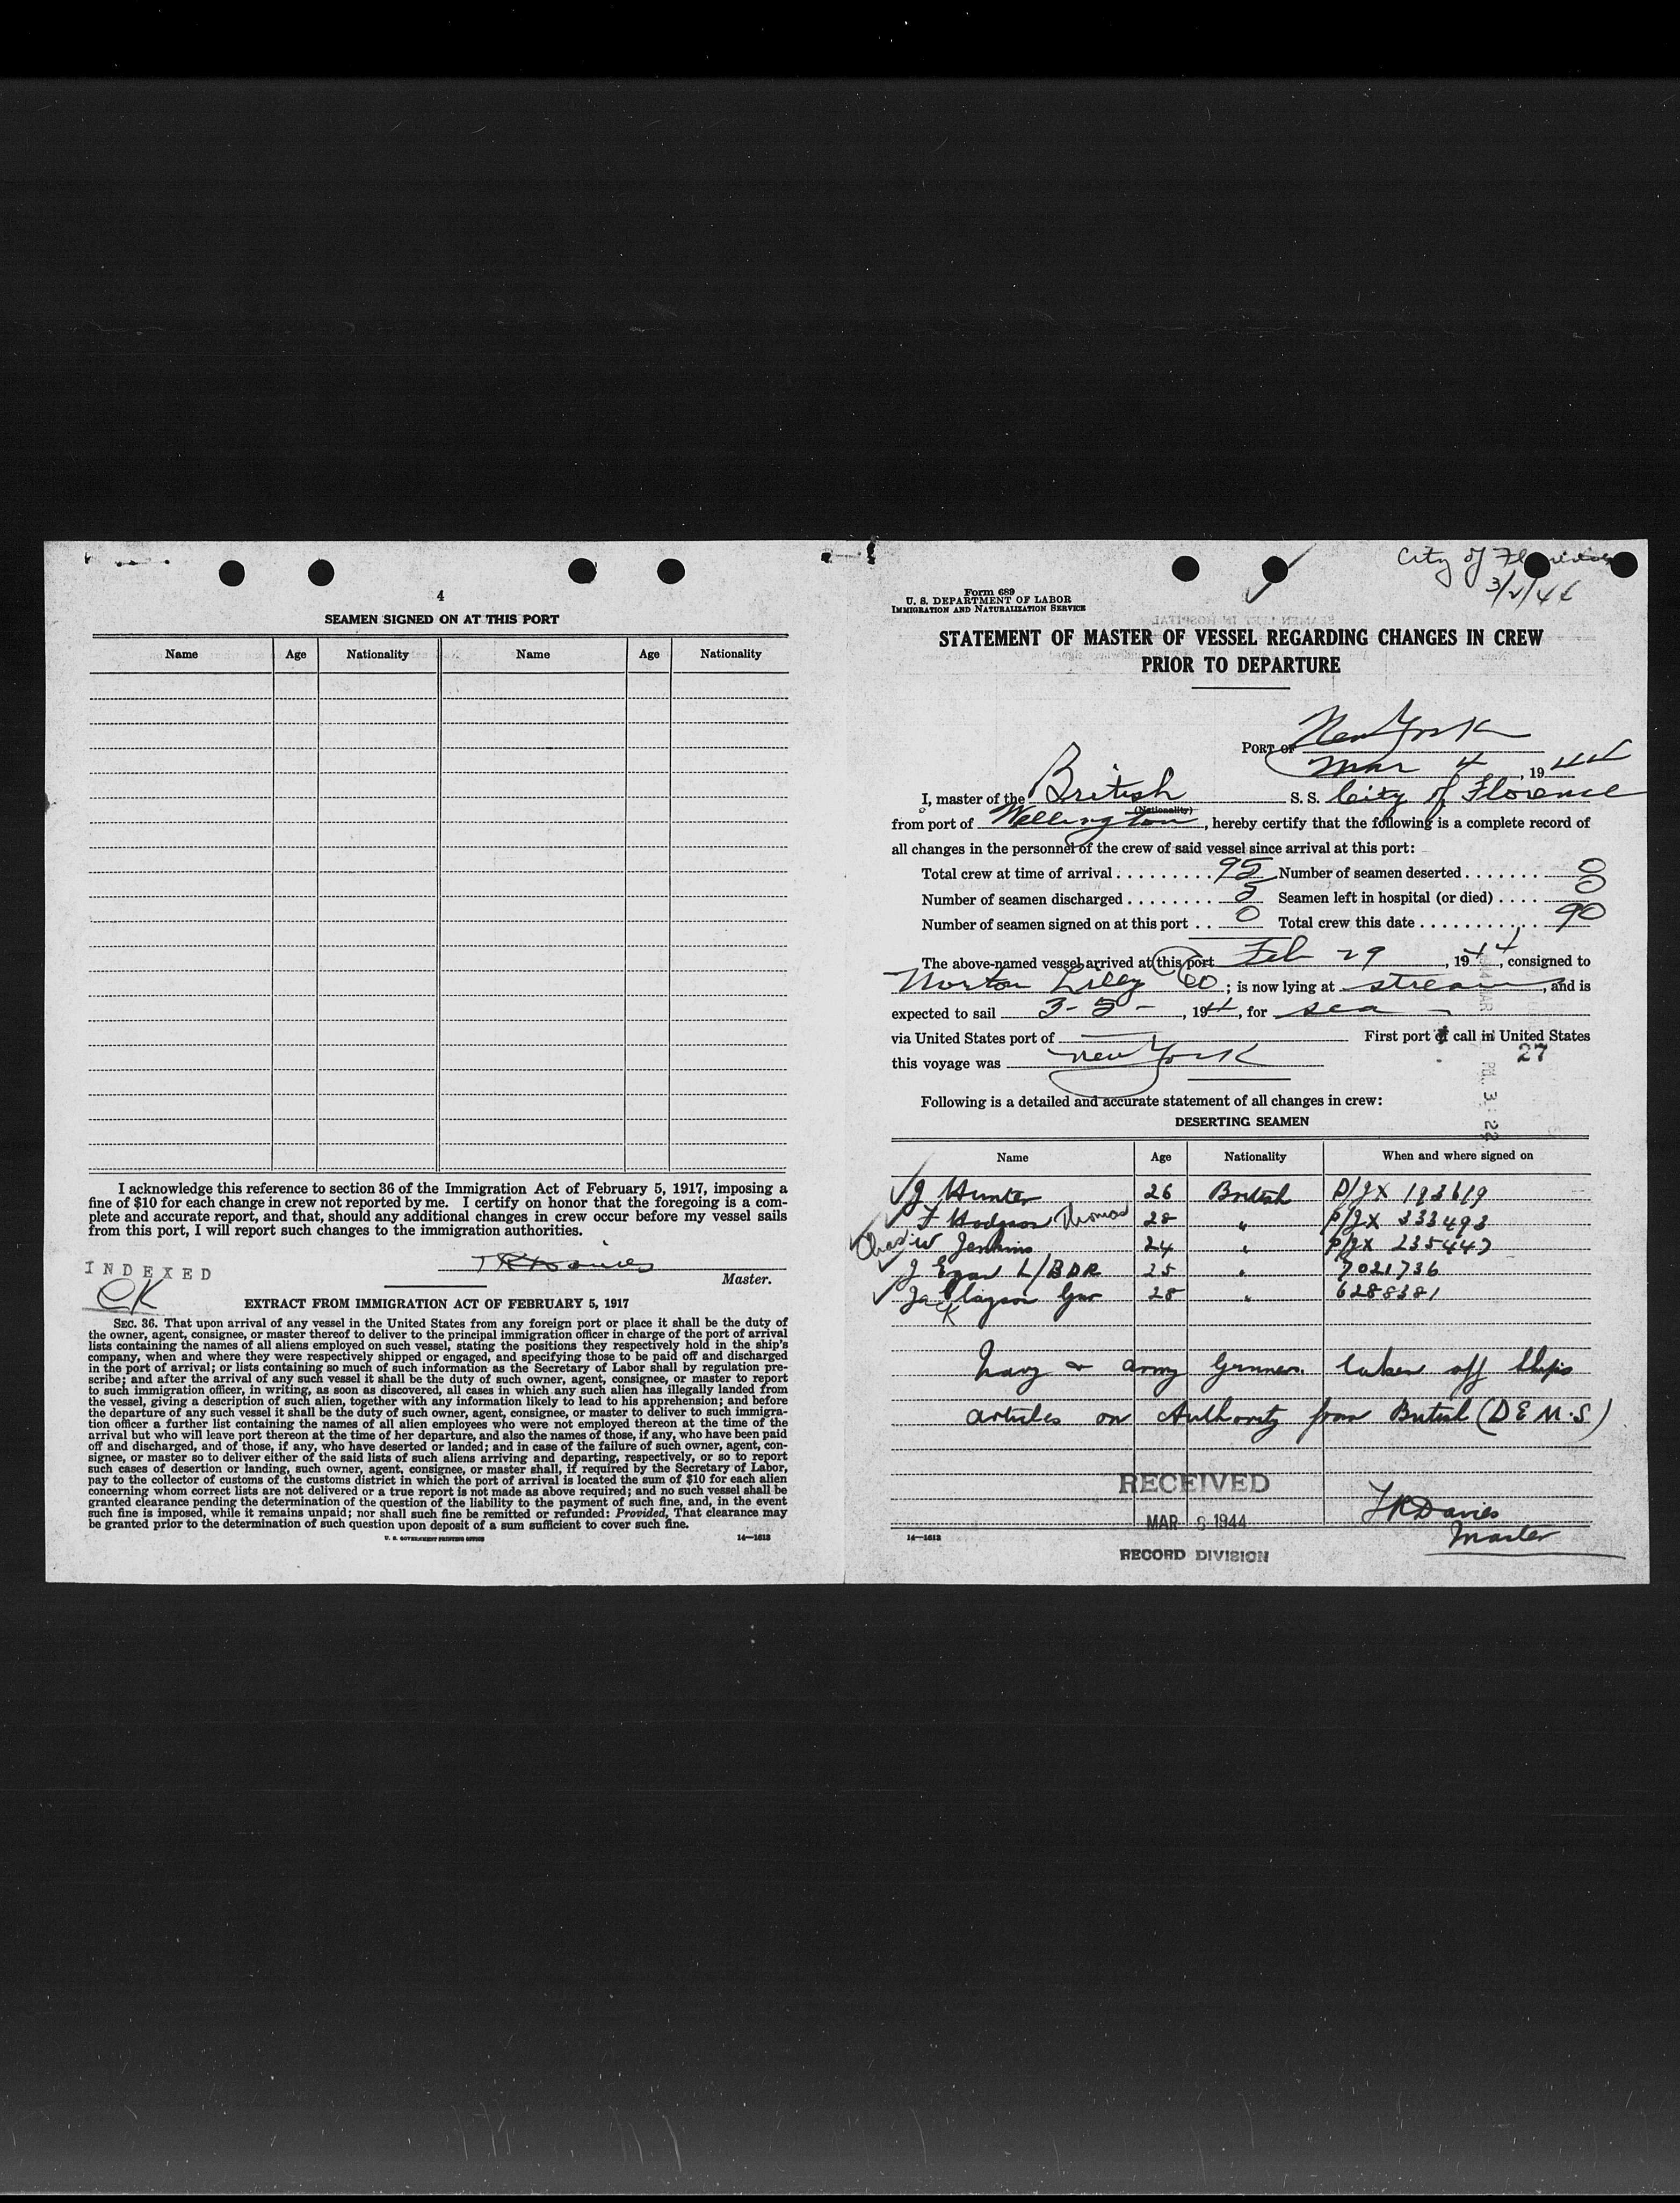 4
SEAMEN SIGNED ON AT THIS PORT
Name Age Nationality Name Age Nationality
I acknowledge this reference to section 36 of the Immigration Act of February 5, 1917, imposing a
fine of $10 for each change in crew not reported by me. I certify on honor that the foregoing is a com-
plete and accurate report, and that, should any additional changes in crew occur before my vessel sails
from this port, I will report such changes to the immigration authorities.
INDEXED
CK
Master.
EXTRACT FROM IMMIGRATION ACT OF FEBRUARY 5, 1917
SEC. 36. That upon arrival of any vessel in the United States from any foreign port or place it shall be the duty of
the owner, agent, consignee, or master thereof to deliver to the principal immigration officer in charge of the port of arrival
lists containing the names of all aliens employed on such vessel, stating the positions they respectively hold in the ship's
company, when and where they were respectively shipped or engaged, and specifying those to be paid off and discharged
in the port of arrival; or lists containing so much of such information as the Secretary of Labor shall by regulation pre-
scribe; and after the arrival of any such vessel it shall be the duty of such owner, agent, consignee, or master to report
to such immigration officer, in writing, as soon as discovered, all cases in which any such alien has illegally landed from
the vessel, giving a description of such alien, together with any information likely to lead to his apprehension; and before
the departure of any such vessel it shall be the duty of such owner, agent, consignee, or master to deliver to such immigra-
tion officer a further list containing the names of all alien employees who were not employed thereon at the time of the
arrival but who will leave port thereon at the time of her departure, and also the names of those, if any, who have been paid
off and discharged, and of those, if any, who have deserted or landed; and in case of the failure of such owner, agent, con-
signee, or master so to deliver either of the said lists of such aliens arriving and departing, respectively, or so to report
such cases of desertion or landing, such owner, agent, consignee, or master shall, if required by the Secretary of Labor,
pay to the collector of customs of the customs district in which the port of arrival is located the sum of $10 for each alien
concerning whom correct lists are not delivered or a true report is not made as above required; and no such vessel shall be
granted clearance pending the determination of the question of the liability to the payment of such fine, and, in the event
such fine is imposed, while it remains unpaid; nor shall such fine be remitted or refunded: Provided, That clearance may
be granted prior to the determination of such question upon deposit of a sum sufficient to cover such fine.
U. S. GOVERNMENT PRINTING OFFICE 14—1613
City of Florence
Form 689
U. S. DEPARTMENT OF LABOR
IMMIGRATION AND NATURALIZATION SERVICE
STATEMENT OF MASTER OF VESSEL REGARDING CHANGES IN CREW
PRIOR TO DEPARTURE
PORT OF New York
Mar 4, 1944
I, master of the British S. S. City of Florence
(Nationality)
from port of Wellington, hereby certify that the following is a complete record of
all changes in the personnel of the crew of said vessel since arrival at this port:
Total crew at time of arrival . . . . . . . . . 95 Number of seamen deserted . . . . . . . 0
Number of seamen discharged . . . . . . . . 5 Seamen left in hospital (or died) . . . . 0
Number of seamen signed on at this port . . 0 Total crew this date . . . . . . . . . . . . 90
The above-named vessel arrived at this port Feb 29, 1944, consigned to
Norton Lilly Co; is now lying at stream, and is
expected to sail 3-5-, 1944, for sea
via United States port of First port of call in United States
this voyage was New York
27
Following is a detailed and accurate statement of all changes in crew:
DESERTING SEAMEN
Name Age Nationality When and where signed on
J Hunter 26 British P/JX 193619
F Hodgson Thomas 28 " P/JX 333493
Chas W Jenkins 24 " P/JX 235447
J Egan L/BDR 25 " 7021736
Jack Clayson Gnr 28 " 6288381
Navy & Army Gunners taken off Ships
articles on Authority from British (DEMS)
RECEIVED
MAR 6 1944
RECORD DIVISION
JRDavies
Master
14—1613